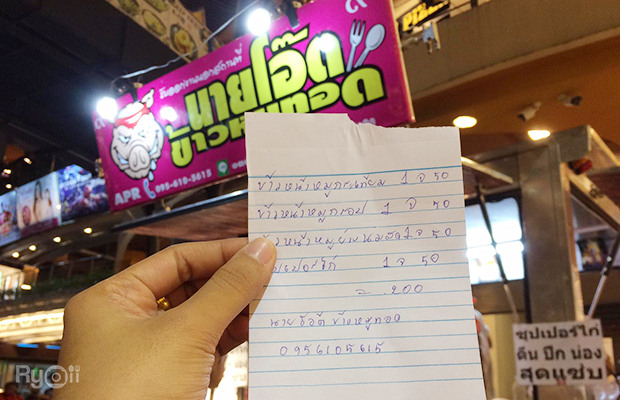 รับออกงานนอกสถานที่
นายโอ๊ต
ข้าวหมูทอด
APR
095-610-5615
ข้าวหน้าหมูกระเทียม 1 จ 50
ข้าวหน้าหมูกรอบ 1 จ 70
1 จ 50
1 จ 50
= 200
นายโอ๊ต ข้าวหมูทอด
0956105615
ซุปเปอร์ไก่
ตีน ปีก น่อง
สุดแซ่บ
Ryoii